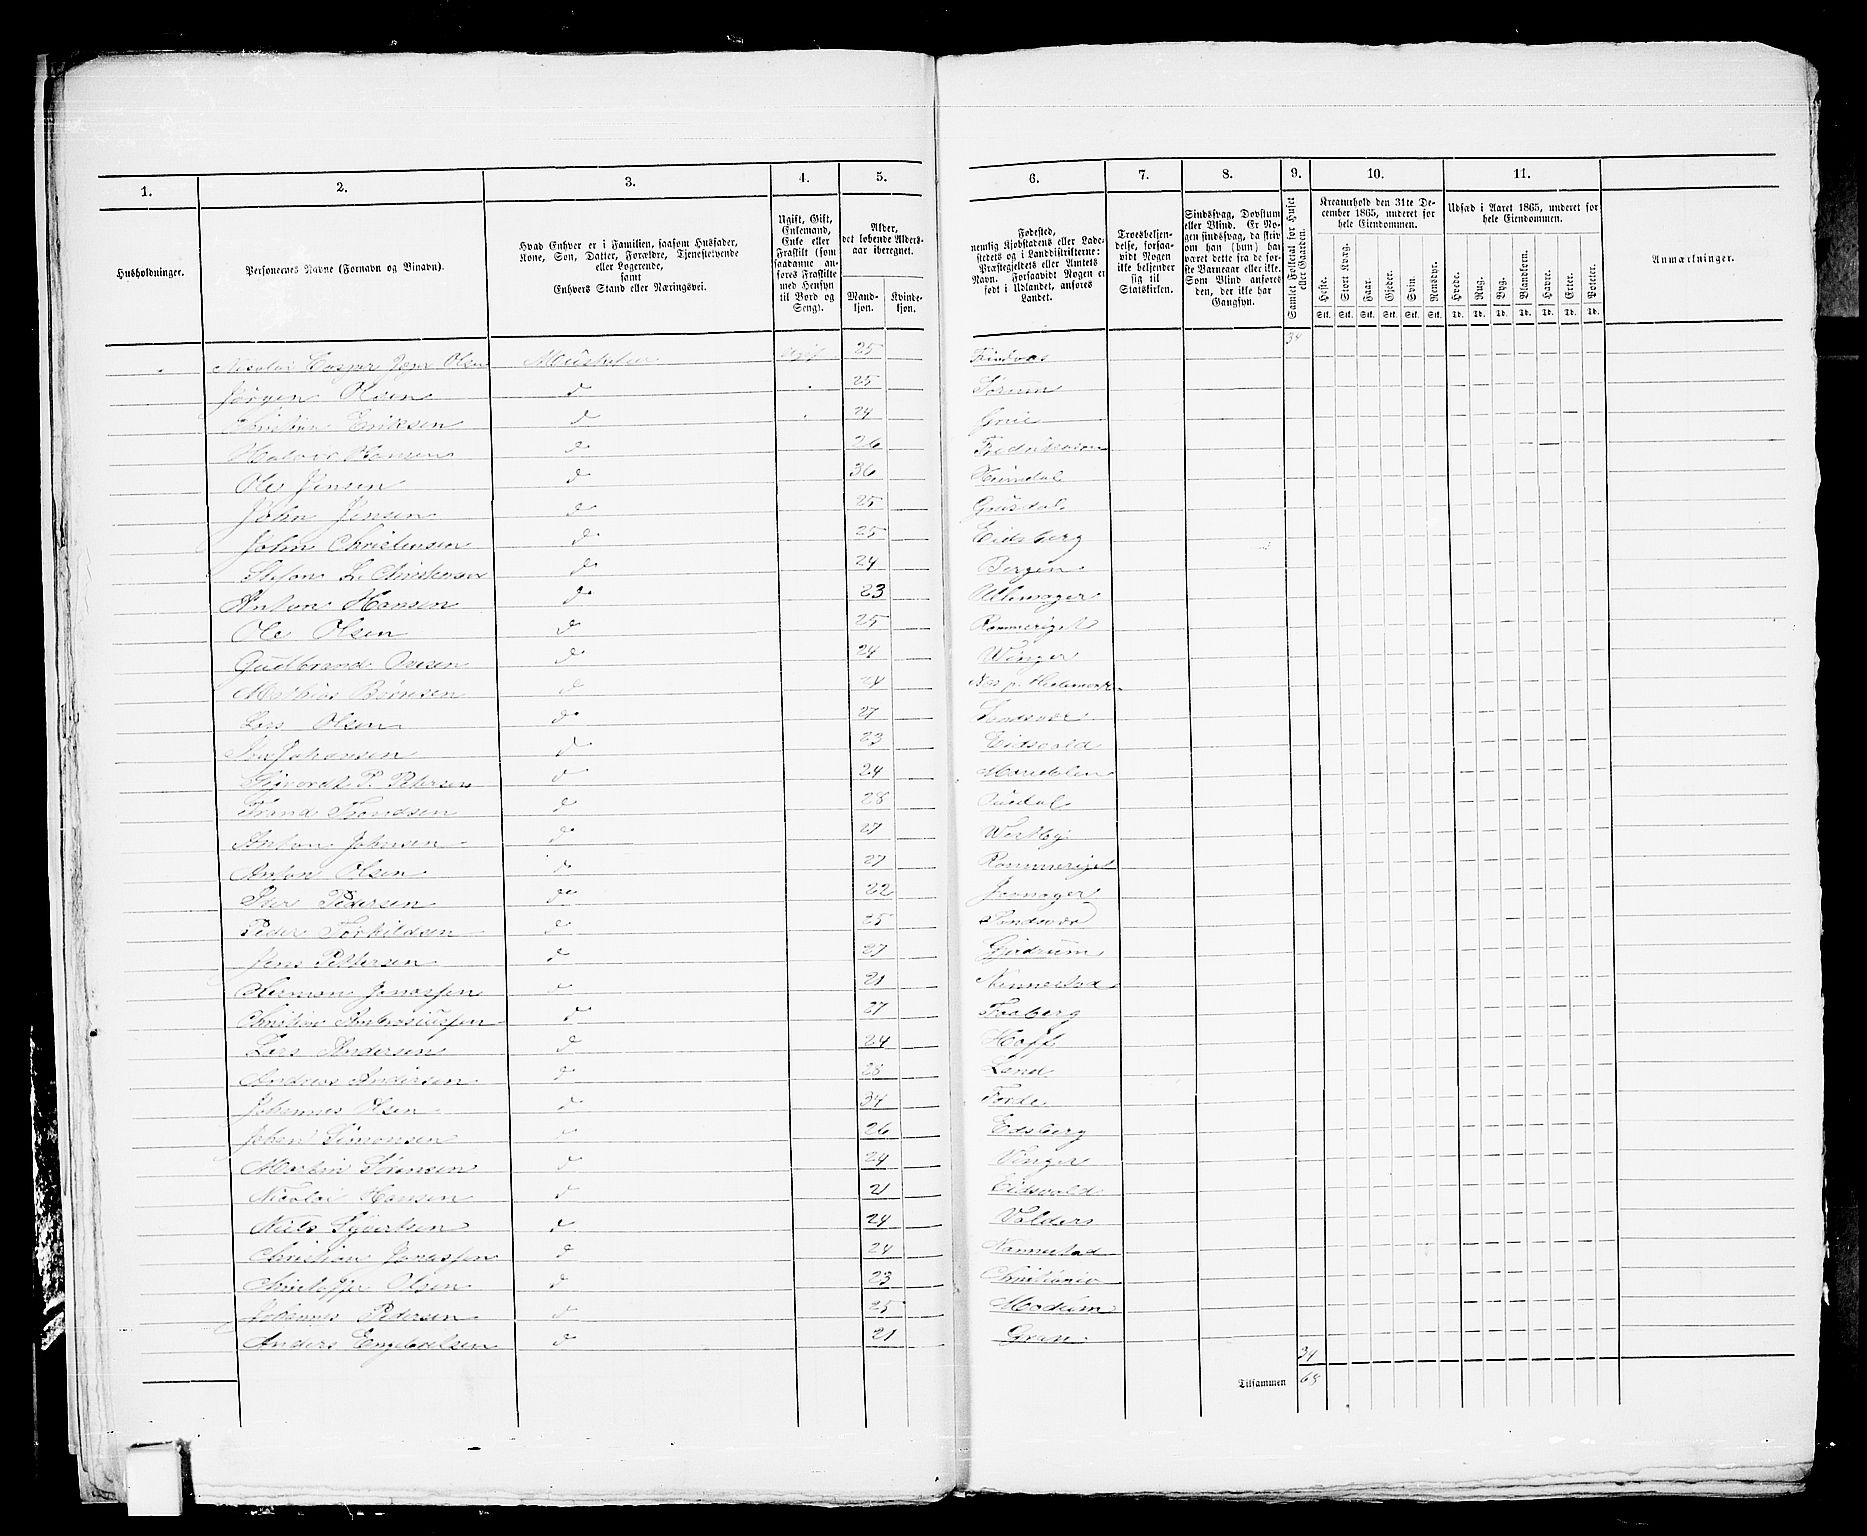 1. 2. 3. 4. 5. 6. 7. 8. 9. 10. 11.
Husholdninger.
Personernes Navne (Fornavn og Binavn).
Hvad Enhver er i Familien, saasom Husfader, Kone, Søn, Datter, Forældre, Tjenestetyende eller Logerende, samt Enhvers Stand eller Næringsvei.
Ugift, Gift, Enkemand, Enke eller Fraskilt (som saadanne anføres Fraskilte med Hensyn til Bord og Seng).
Alder, det løbende Alders-aar iberegnet.
Mand-kjøn. Kvinde-kjøn.
Fødested, nemlig Kjøbstadens eller Ladestedets og i Landdistrikterne: Præstegjeldets eller Amtets Navn. Forsaavidt Nogen er født i Udlandet, anføres Landet.
Troesbekjendelse, forsaavidt Nogen ikke bekjender sig til Statskirken.
Sindssvag, Døvstum eller Blind. Er Nogen sindssvag, da skriv om han (hun) har været dette fra de første Barneaar eller ikke. Som Blind anføres den, der ikke har Gangsyn.
Samlet Folketal for Huset eller Gaarden.
Kreaturhold den 31te December 1865, underet for hele Eiendommen.
Heste. Stort Kvæg. Faar. Gjeder. Svin. Rensdyr.
Stk. Stk. Stk. Stk. Stk. Stk.
Udsæd i Aaret 1865, underet for hele Eiendommen.
Hvede. Rug. Byg. Blandkorn. Havre. Erter. Poteter.
Td. Td. Td. Td. Td. Td. Td.
Anmærkninger.
34
Olsen 25
Jørgen Olsen d 25 Sørum
Christian Eriksen d 24 Grue
Halvor Hansen d 26
Ole Jensen d 36
John Jensen d 25
John Christensen d 25 Eidsberg
Stefan L. Christensen d 24 Bergen
Anton Hansen d 23 Ullensager
Ole Olsen d 25 Romeriget
Gudbrand d 24 Winger
Mathias d 24 Næs p. Hedemarken
Lars Olsen d 27 Sandsvær
Johansen d 23 Eidsvold
P. Petersen d 24 Maridalen
Trond Trondsen d 28
Anton Johnsen d 27 Westby
Anton Olsen d 27 Rommeriget
Pedersen d 22 Jevnager
Peder Torkildsen d 25 Sandsvær
Jens Pettersen d 27 Gjedrum
Herman Jonassen d 21 Nannestad
Christian Ambrosiussen d 27 Faaberg
Lars Andersen d 24 Hoff
Andreas Andersen d 28 Land
Johannes Olsen d 34 Førde
Johan Simonsen d 26 Edsberg
Martin Sørensen d 24 Vinger
Nicolai Hansen d 21 Eidsvold
Niels Syvertsen d 24 Valders
Christian Jonassen d 24 Nannestad
Christoffer Olsen d 23 Christiania
Johannes Pedersen d 25 Modum
Anders Engebretsen d 21 Gran
34
Tilsammen 68